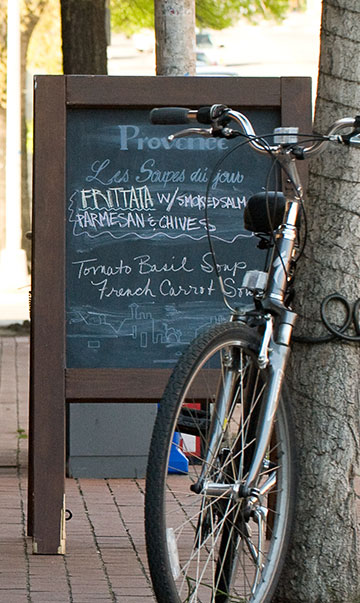 Provence
Les Soupes du jour
FRITTATA W/ SMOKED SALM
PARMESAN & CHIVES
Tomato Basil Soup
French Carrot Sou